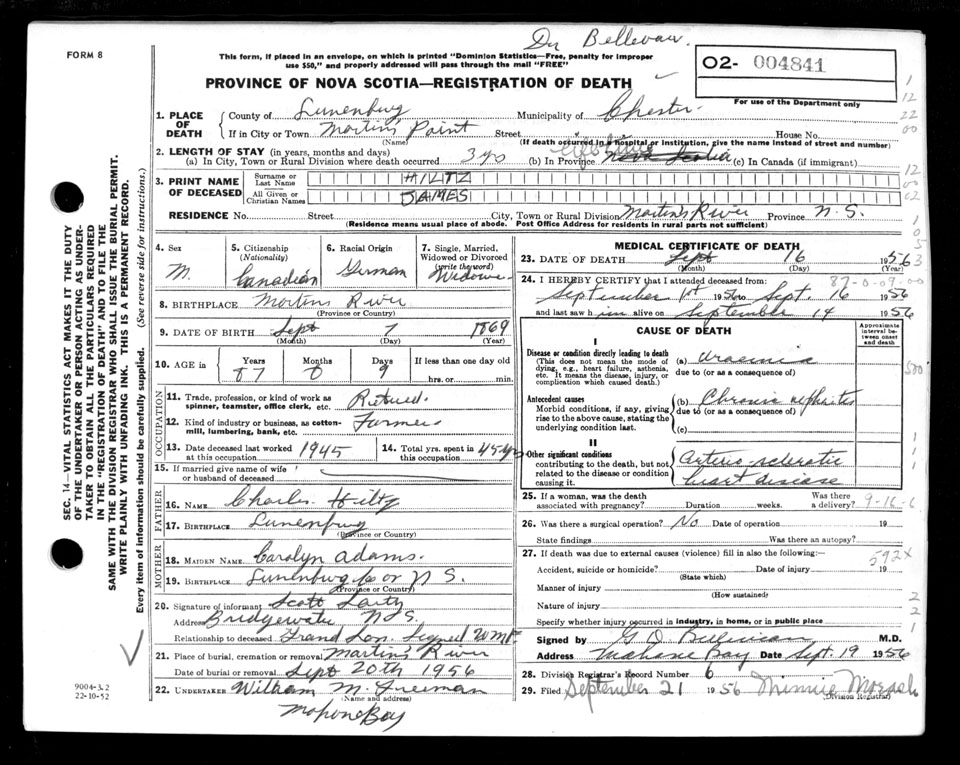 Dr Belleveau
FORM 8
This form, if placed in an envelope, on which is printed "Dominion Statistics—Free, penalty for improper
use $50," and properly addressed will pass through the mail "FREE"
02- 004841
For use of the Department only
PROVINCE OF NOVA SCOTIA—REGISTRATION OF DEATH
1. PLACE OF DEATH
County of Lunenburg Municipality of Chester
If in City or Town Martins Point Street House No.
(Name) (If death occurred in a hospital or institution, give the name instead of street and number)
2. LENGTH OF STAY (in years, months and days)
(a) In City, Town or Rural Division where death occurred 3 yrs (b) In Province Nova Scotia (c) In Canada (if immigrant)
3. PRINT NAME OF DECEASED
Surname or Last Name HILTZ
All Given or Christian Names JAMES
RESIDENCE No. Street City, Town or Rural Division Martins River Province N.S.
(Residence means usual place of abode. Post Office Address for residents in rural parts not sufficient)
4. Sex M.
5. Citizenship (Nationality) Canadian
6. Racial Origin German
7. Single, Married, Widowed or Divorced (write the word) Widower
8. BIRTHPLACE Martins River
(Province or Country)
9. DATE OF BIRTH Sept 7 1869
(Month) (Day) (Year)
10. AGE in Years 87 Months 0 Days 9 If less than one day old
hrs. or min.
OCCUPATION
11. Trade, profession, or kind of work as spinner, teamster, office clerk, etc. Retired.
12. Kind of industry or business, as cotton-mill, lumbering, bank, etc. Farmer
13. Date deceased last worked at this occupation 1945
14. Total yrs. spent in this occupation 45 yrs
15. If married give name of wife or husband of deceased
FATHER
16. NAME Charles Hiltz
17. BIRTHPLACE Lunenburg
(Province or Country)
MOTHER
18. MAIDEN NAME Carolyn Adams.
19. BIRTHPLACE Lunenburg Co or N S.
(Province or Country)
20. Signature of informant Scott
Address Bridgewater N S.
Relationship to deceased Grand Son. Signed W M F.
21. Place of burial, cremation or removal Martins River
Date of burial or removal Sept 20th 1956
22. UNDERTAKER William M. Freeman
(Name and address)
Mahone Bay
9004-3.2
22-10-52
SEC. 14—VITAL STATISTICS ACT MAKES IT THE DUTY
OF THE UNDERTAKER OR PERSON ACTING AS UNDER-
TAKER TO OBTAIN ALL THE PARTICULARS REQUIRED
IN THE "REGISTRATION OF DEATH" AND TO FILE THE
SAME WITH THE DIVISION REGISTRAR WHO SHALL ISSUE THE BURIAL PERMIT.
WRITE PLAINLY WITH UNFADING INK. THIS IS A PERMANENT RECORD.
Every item of information should be carefully supplied. (See reverse side for instructions.)
MEDICAL CERTIFICATE OF DEATH
23. DATE OF DEATH Sept 16 1956
(Month) (Day) (Year)
87-0-09-00
24. I HEREBY CERTIFY that I attended deceased from:
September 1st 1956 to Sept. 16 1956
and last saw him alive on September 14 1956
CAUSE OF DEATH
Approximate interval between onset and death
I
Disease or condition directly leading to death
(This does not mean the mode of dying, e.g., heart failure, asthenia, etc. It means the disease, injury, or complication which caused death.)
(a) Uraemia
due to (or as a consequence of)
Antecedent causes
Morbid conditions, if any, giving rise to the above cause, stating the underlying condition last.
(b) Chronic nephritis
due to (or as a consequence of)
(c)
II
Other significant conditions
contributing to the death, but not related to the disease or condition causing it.
Arterio-sclerotic
heart disease
25. If a woman, was the death associated with pregnancy? Duration weeks. Was there a delivery?
9-16-6
26. Was there a surgical operation? No Date of operation 19
State findings Was there an autopsy?
27. If death was due to external causes (violence) fill in also the following:—
592X
Accident, suicide or homicide? Date of injury 19
(State which)
Manner of injury
(How sustained)
Nature of injury
Specify whether injury occurred in industry, in home, or in public place
Signed by M.D.
Address Mahone Bay Date Sept. 19 1956
28. Division Registrar's Record Number 6
29. Filed September 21 1956 Minnie Morash
(Division Registrar)